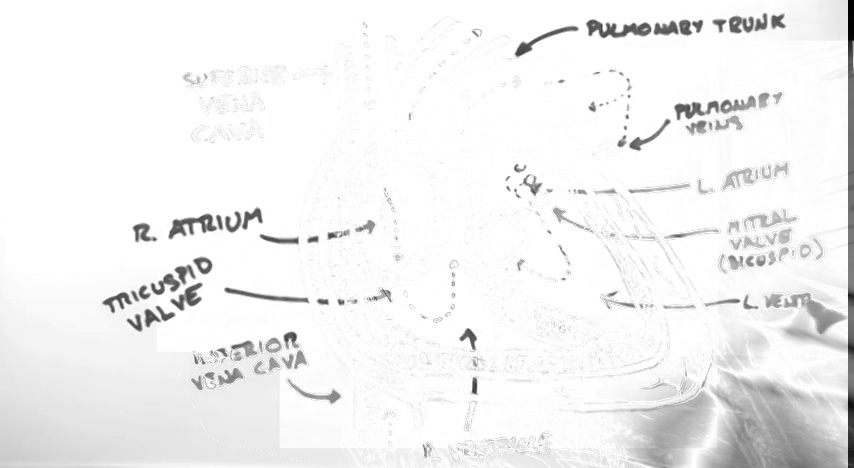 PULMONARY TRUNK
SUPERIOR
VENA
CAVA
PULMONARY
VEINS
L. ATRIUM
R. ATRIUM
MITRAL
VALVE
(BICUSPID)
TRICUSPID
VALVE
L. VENTR
INTERIOR
VENA CAVA
R. VENTRICLE